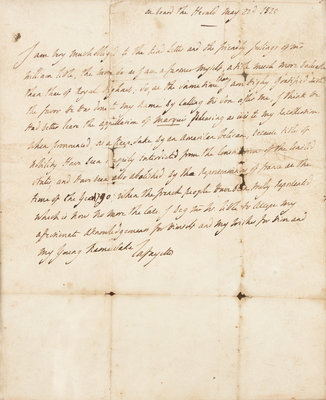 on board the Herald May 22d 1825
I am very much obliged to the kind letter and the friendly feelings of mr
William Little, the more so as I am a farmer myself, a title much more
than that of Royal Highness. So, at the same time that I am highly gratified with
the favor he has done to my name by calling his son after me I think he
had better leave the appellation of marquis pleasing as it is to my recollection
when pronounced as a by, because titles of
Nobility have been interdicted from the Constitution of the United
States, and have been also abolished by the Representatives of france at the
time of the year 90 when the french people were truly represented
which is now no more the case. I beg mr Little to accept my
affectionate acknowledgements for himself and my wishes for him and
my Young Namesake
Lafayette